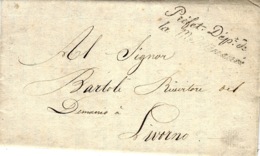 Préfet. Dép. de
la M
Al Signor
Bartoli Ricevitore del
Demanio à
Livorno